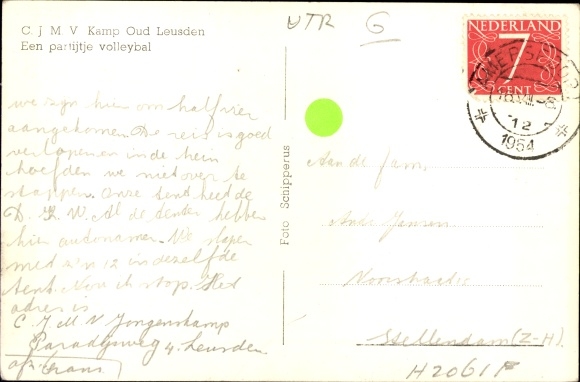 C J M V Kamp Oud Leusden
Een partijtje volleybal
UTR G
NEDERLAND
7
CENT
AMERSFOORT
12
1954
we zyn hier om half vier
aangekomen. De reis is goed
verlopen en in de trein
hoefden we niet over te
stappen. Onze tent heet de
D. K. W. Al de tenten hebben
hier autonamen. We slapen
met z'n 12 in dezelfde
tent. Nou ik stop. Het
adres is
C. J. M. V Jongenskamp
Paradijsweg 4. Leusden
afz. Frans
Foto Schipperus
Aan de Fam.
Jansen
Voorstraat
Stellendam (Z-H)
H2061F